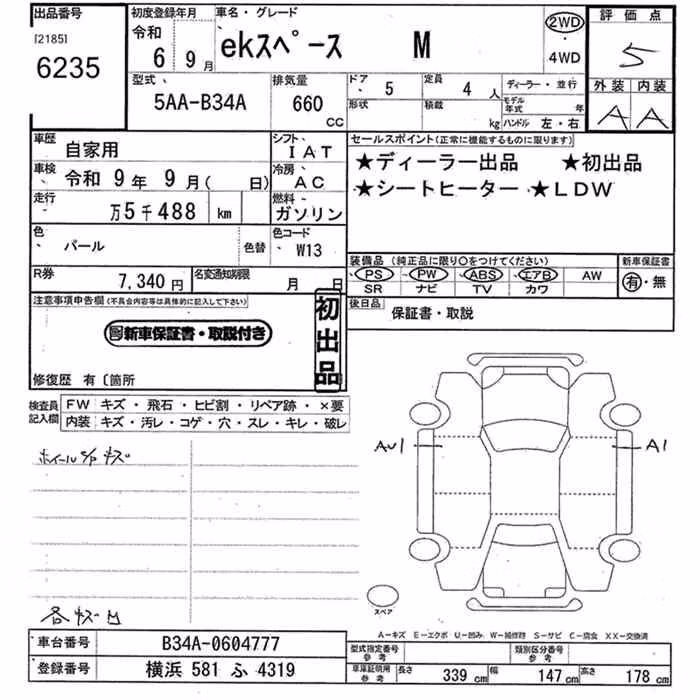 出品番号
[2185]
6235
初度登録年月
令和
6年 9月
車名・グレード
ekスペース M
2WD
・
4WD
評価点
5
外装 内装
A A
型式
5AA-B34A
排気量
660
CC
ドア 5
形状
定員 4 人
積載 kg
ディーラー・並行
モデル年式 年
ハンドル 左・右
車歴 自家用
シフト IAT
車検 令和 9年 9月( 日)
冷房 AC
走行 万5千488 km
燃料 ガソリン
色 パール 色替
色コード W13
R券 7,340円
名変通知期限 月 日
セールスポイント(正常に機能するものに限ります)
★ディーラー出品 ★初出品
★シートヒーター ★LDW
装備品 (純正品に限り○をつけてください)
PS PW ABS エアB AW
SR ナビ TV カワ
新車保証書
有・無
後日品 保証書・取説
注意事項申告欄(不具合内容等は具体的に記入して下さい)
新車保証書・取説付き
初出品
修復歴 有〔箇所
検査員記入欄
FW キズ・飛石・ヒビ割・リペア跡・×要
内装 キズ・汚レ・コゲ・穴・スレ・キレ・破レ
ホイールS/P キズ
各キズ凹
AU1
A1
スペア
A-キズ E-エクボ U-凹み W-補修跡 S-サビ C-腐食 XX-交換済
車台番号 B34A-0604777
登録番号 横浜 581 ふ 4319
型式指定番号 参考
類別区分番号 参考
車庫証明用 参考
長さ 339cm 幅 147cm 高さ 178cm